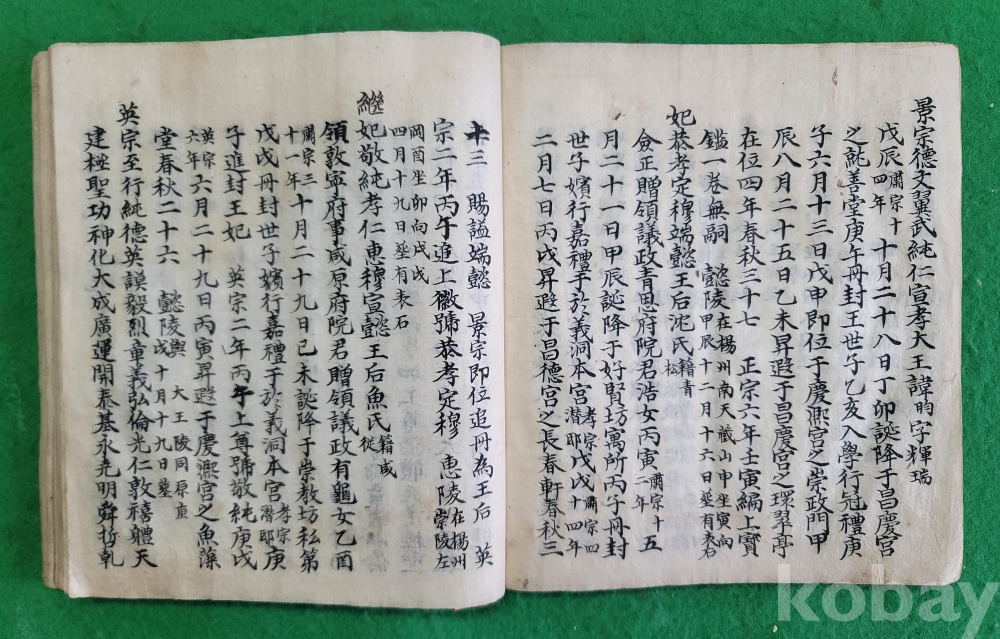 景宗德文翼武純仁宣孝大王諱昀字輝瑞
戊辰肅宗十四年十月二十八日丁卯誕降于昌慶宮
之就善堂庚午冊封王世子乙亥入學行冠禮庚
子六月十三日戊申即位于慶熙宮之崇政門甲
辰八月二十五日乙未昇遐于昌慶宮之環翠亭
在位四年春秋三十七 正宗六年壬寅編上寶
鑑一卷無嗣 懿陵在楊州南天藏山申坐寅向甲辰十二月十六日葬有表石
妃恭孝定穆端懿王后沈氏籍青松
僉正贈領議政青恩府院君浩女丙寅肅宗十二年五
月二十一日甲辰誕降于好賢坊寓所丙子冊封
世子嬪行嘉禮于於義洞本宮孝宗潛邸戊戌肅宗四十四年
二月七日丙戌昇遐于昌德宮之長春軒春秋三
十三 賜謚端懿 景宗即位追冊為王后 英
宗二年丙午追上徽號恭孝定穆 惠陵在楊州崇陵左
岡酉坐卯向戊戌四月十九日葬有表石
繼妃敬純孝仁惠穆宣懿王后魚氏籍咸從
領敦寧府事咸原府院君贈領議政有龜女乙酉
肅宗三十一年十月二十九日己未誕降于崇教坊私第
戊戌冊封世子嬪行嘉禮于於義洞本宮孝宗潛邸庚
子進封王妃 英宗二年丙午上尊號敬純庚戌
英宗六年六月二十九日丙寅昇遐于慶熙宮之魚藻
堂春秋二十六 懿陵與大王陵同原庚戌十月十九日葬
英宗至行純德英謨毅烈章義弘倫光仁敦禧體天
建極聖功神化大成廣運開泰基永堯明舜哲乾
kobay